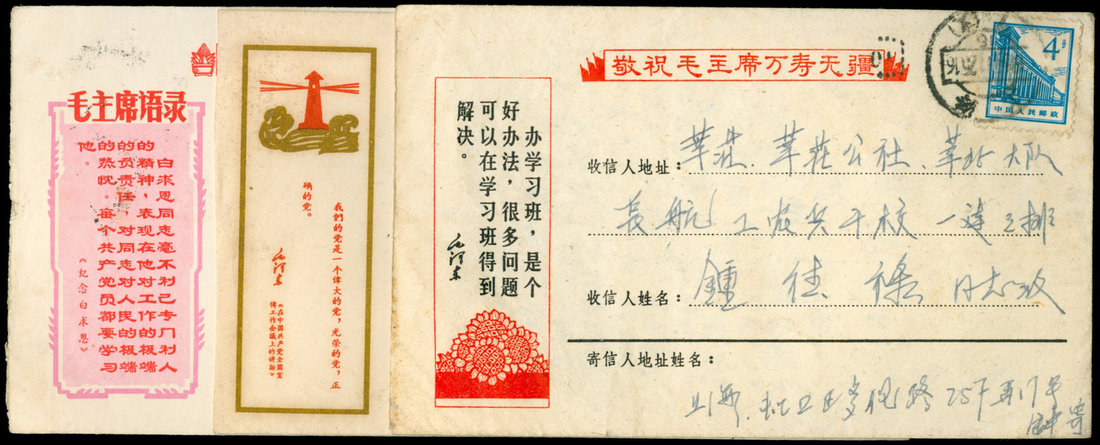 毛主席语录
白求恩同志毫不利己专门利人
的精神，表现在他对工作的极端
的负责任，对同志对人民的极端
的热忱。每个共产党员都要学习
他。
《纪念白求恩》
我們的党是一个偉大的党，光榮的党，正
确的党。
毛泽东
《在中国共产党全国宣
传工作会議上的講話》
办学习班，是个
好办法，很多问题
可以在学习班得到
解决。
毛泽东
敬祝毛主席万寿无疆
4分
中国人民邮政
收信人地址：莘庄 莘莊公社 莘北大队
長航 工农兵干校 一連 2排
收信人姓名：鍾 佳 同志收
寄信人地址姓名：
上海 路 257弄 17号
寄